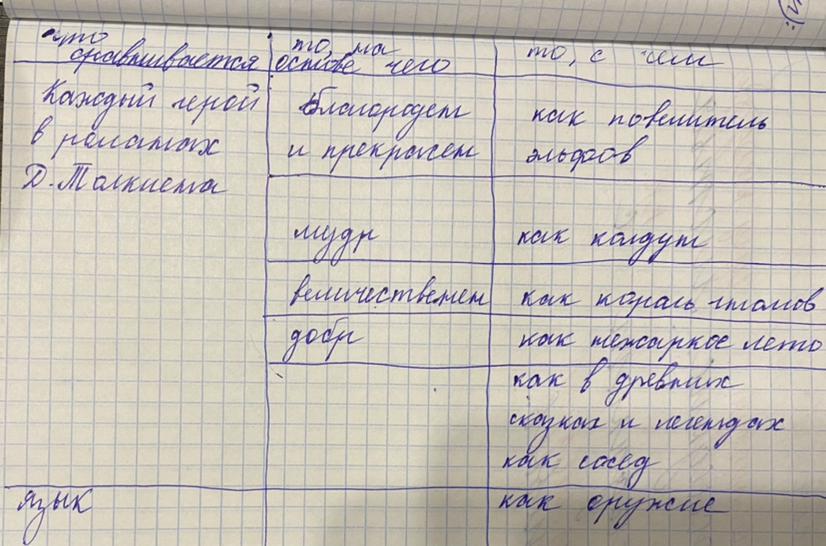 что то, на то, с чем
сравнивается основе чего
Каждый герой благороден как повелитель
в романах и прекрасен эльфов
Д. Толкиена
мудр как колдун
величественен как король гномов
добр как нежаркое лето
как в древних
сказках и легендах
как сосед
язык как оружие